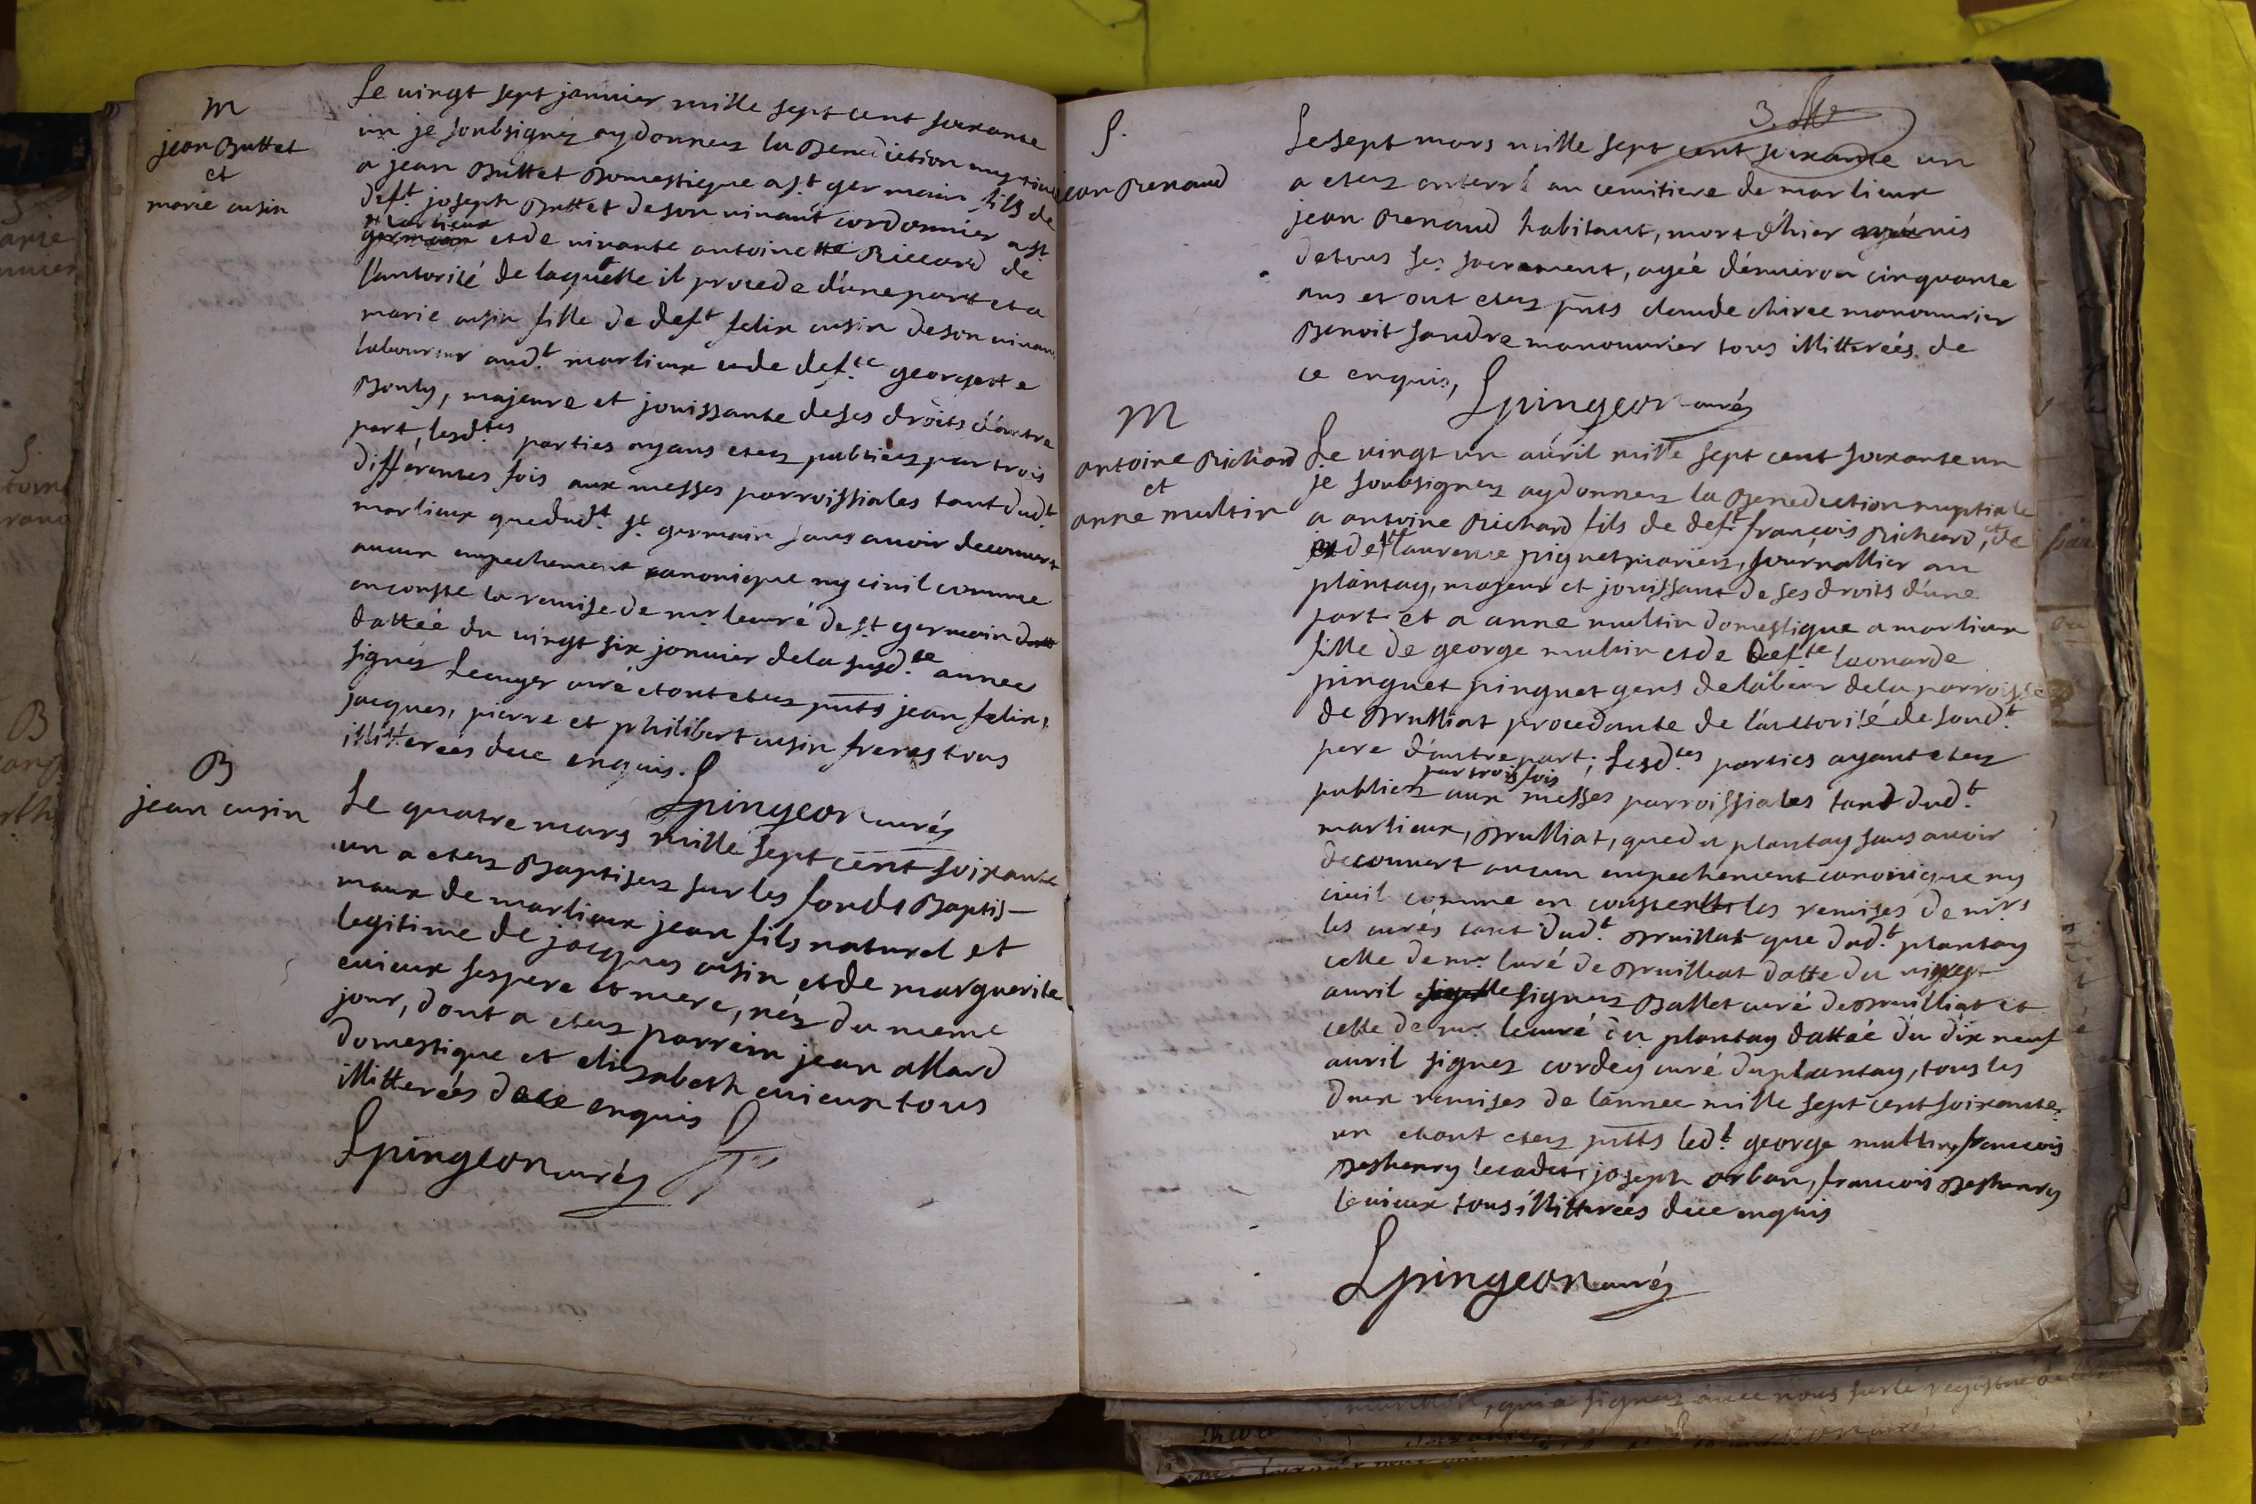 M
jean Buttet
et
marie cusin
Le vingt sept janvier mille sept cent soixante
un je soubsignéz ay donnez la Benediction nuptiale
a jean Buttet Domestique a st. germain fils de
deft. joseph Buttet de son vivant cordonnier a st.
marlieux
germain et de vivante antoinette Riccard de
l'autorité de laquelle il procede d'une part et a
marie cusin fille de deft felix cusin de son vivant
laboureur audt. marlieux et de defte. georgette
Bouly, majeure et jouissante de ses droits d'autre
part, lesdtes parties ayans etez publiez par trois
differentes fois aux messes parroissiales tant dudt.
marlieux que dudt. st. germain sans avoir decouvert
aucun empechement canonique ny civil comme
en conste la remise de mr. le curé de st. germain
dattéé du vingt six janvier de la susdte année
signéz Lecuyer curé et ont etez pnts jean, felix,
jacques, pierre et philibert cusin freres tous
illitterées de ce enquis.
Spingeon curéz
B
jean cusin
Le quatre mars mille sept cent soixante
un a etez Baptisez sur les fonds Baptis-
maux de marlieux jean fils naturel et
legitime de jacques cusin et de marguerite
cuieux ses pere et mere, néz du meme
jour, dont a etez parrein jean allard
domestique et elizabeth cuieux tous
illitterées de ce enquis
Spingeon curéz
3.
S.
jean Renaud
Le sept mars mille sept cent soixante un
a etez enterré au cemitiere de marlieux
jean Renaud habitant, mort d'hier munis
de tous ses sacrement, agéé d'environ cinquante
ans et ont etez pnts claude chiree manouvrier
Benoit sandre manouvrier tous illitterées de
ce enquis,
Spingeon curéz
M
antoine Richard
et
anne multin
Le vingt un avril mille sept cent soixante un
je soubsignez ay donnez la Benediction nuptiale
a antoine Richard fils de deft françois Richard, et de
deft laurence piguet mariez, journallier au
plantay, majeur et jouissant de ses droits d'une
part et a anne multin domestique a marlieux
fille de george multin et de defte leonarde
pinguet pinguet gens de labeur de la parroisse
de Druilliat procedante de l'auttorité de sondt.
pere d'autre part; lesdtes parties ayant etez
par trois fois
publiez aux messes parroissiales tant dudt.
marlieux, Druilliat, que du plantay sans avoir
decouvert aucun empechement canonique ny
civil comme en constent les remises de mrs
les curés tant dudt. Druillat que dudt. plantay
celle de mr. curé de Druilliat datte du
avril signez Ballet curé de Druilliat et
celle de mr. le curé du plantay dattéé du dix neuf
avril signez cordey curé du plantay, tous les
deux remises de l'année mille sept cent soixante
un et ont etez pntts ledt. george multin, françois
Beshenry le cadet, joseph orban, françois Beshenry
le vieux tous illitterées de ce enquis
Spingeon curéz